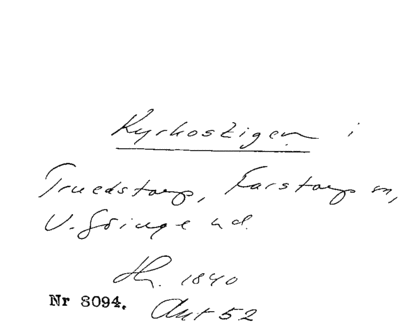 Kyrkostigen i
Truedstorp, Farstorp sn,
V. Göinge hd.
1840
Nr 8094. Akt 52